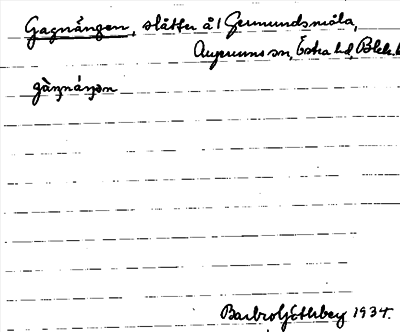 Gagnången, slåtter å 1 Germundsmåla,
Augerums sn, Östra hd, Blek. l
gàŋnáŋən
Barbro Götheberg 1934.